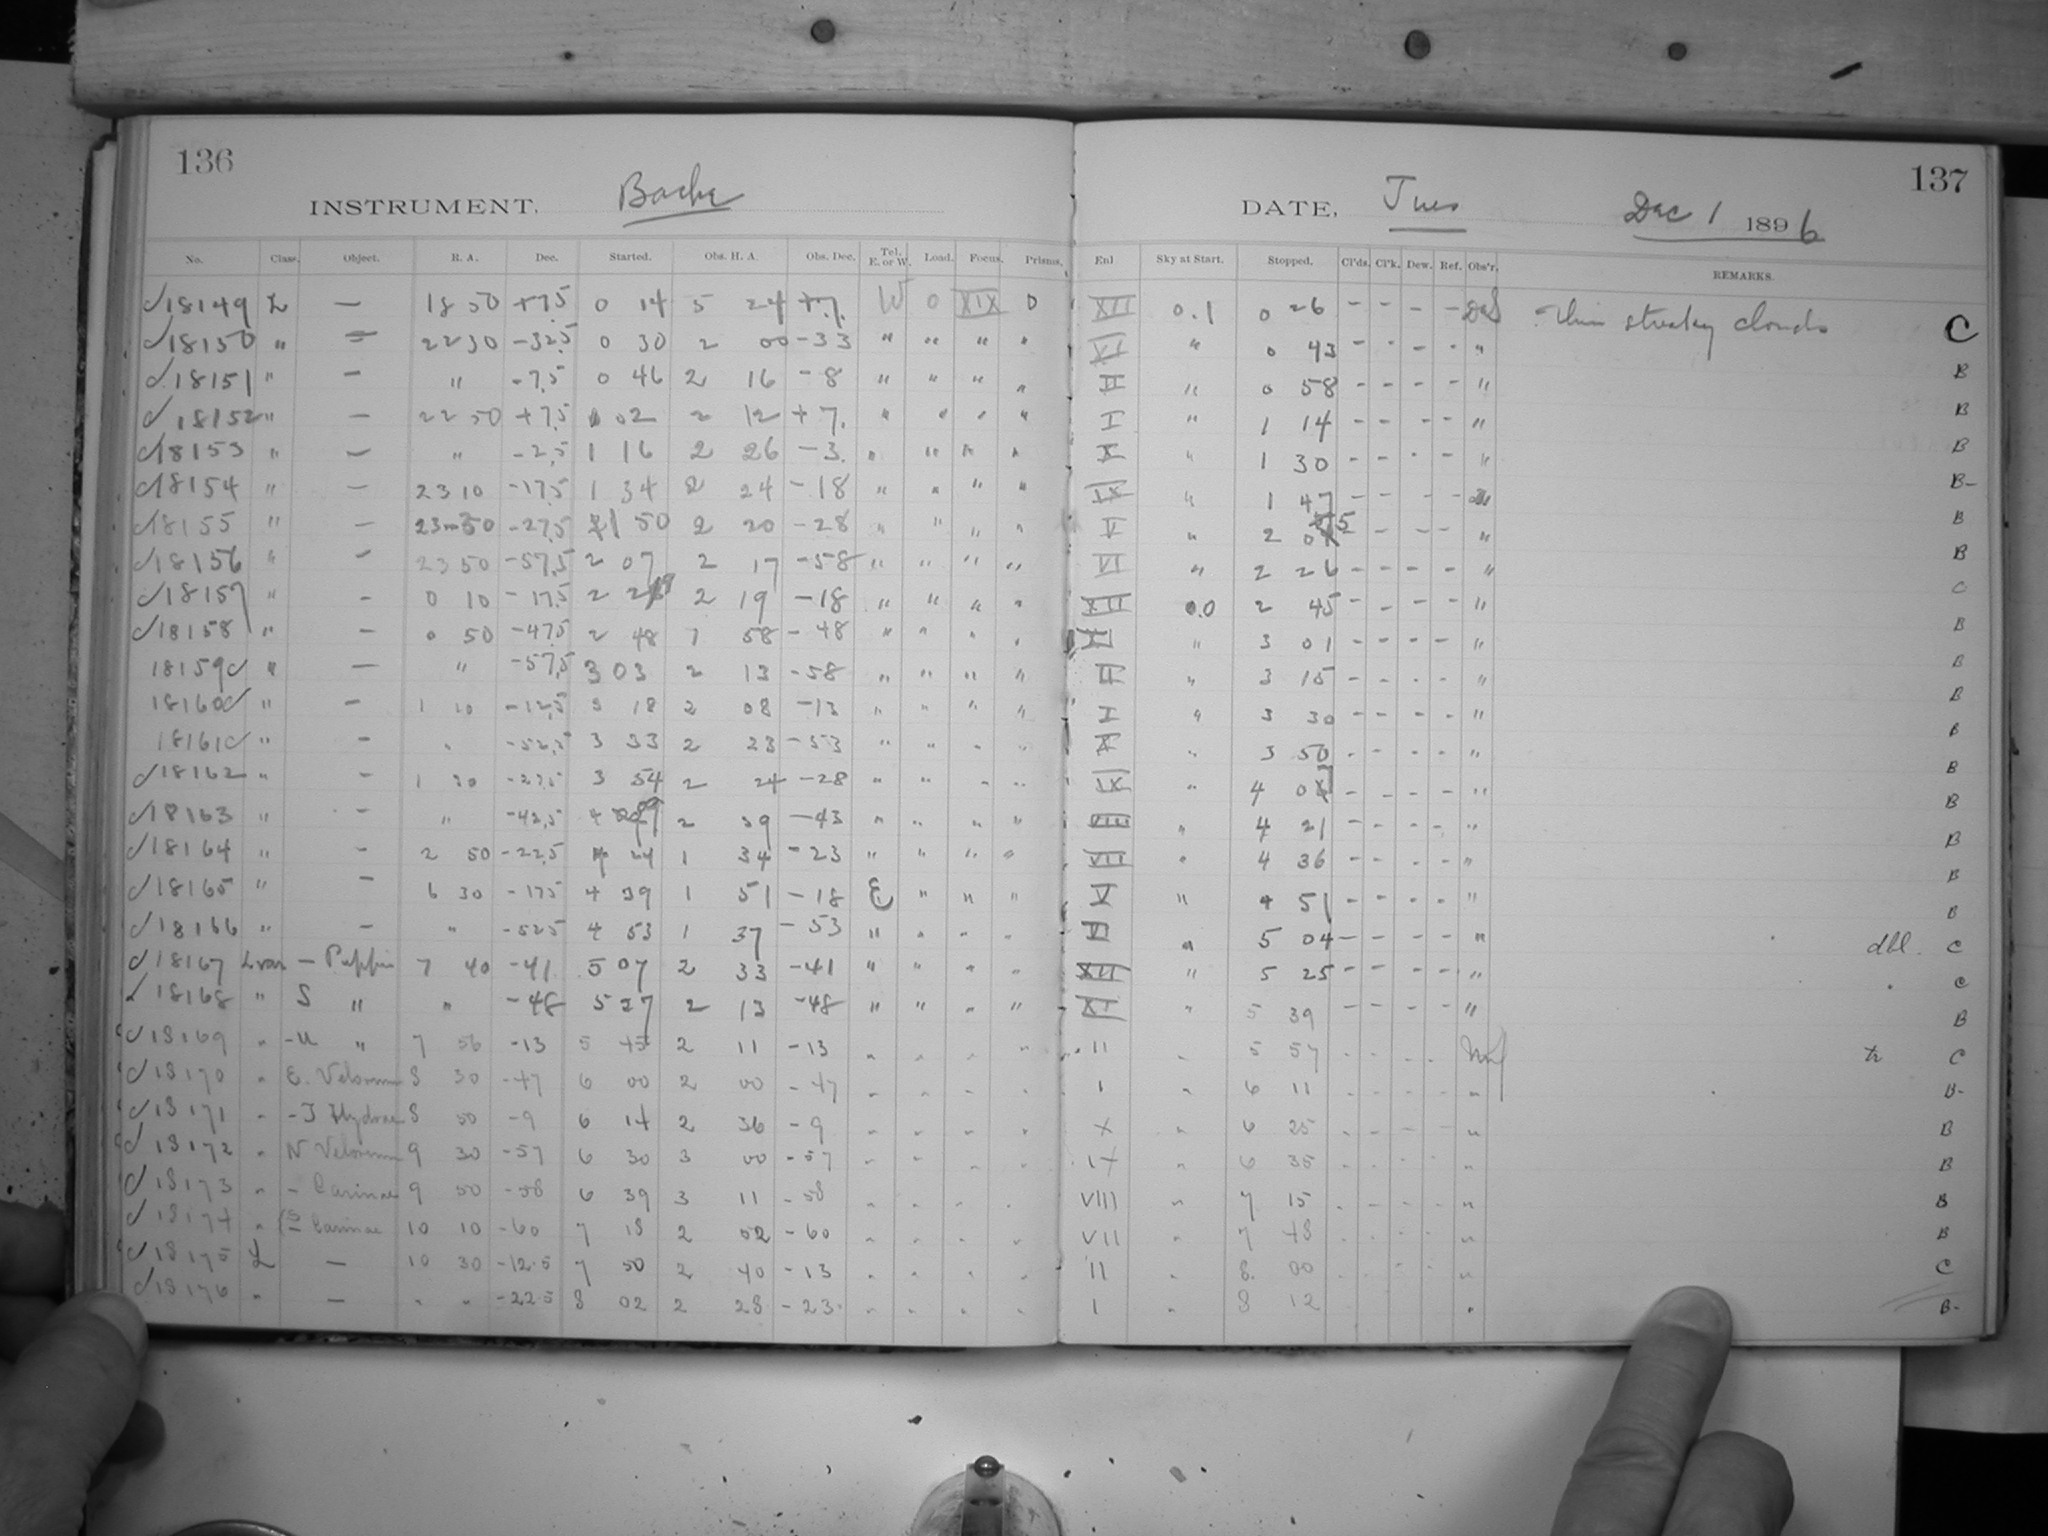 136
INSTRUMENT, Bache
No. Class. Object. R. A. Dec. Started. Obs. H. A. Obs. Dec. Tel. E. or W. Load. Focus. Prisms.
18149 L — 18 50 +7.5 0 14 5 24 +7. W 0 XIX 0
18150 " = 22 30 -32.5 0 30 2 00 -33 " " " "
18151 " — " -7.5 0 46 2 16 -8 " " " "
18152 " — 22 50 +7.5 1 02 2 12 +7. " " " "
18153 " — " -2.5 1 16 2 26 -3. " " " "
18154 " — 23 10 -17.5 1 34 2 24 -18 " " " "
18155 " — 23 30 -27.5 1 50 2 20 -28 " " " "
18156 " — 23 50 -57.5 2 07 2 17 -58 " " " "
18157 " — 0 10 -17.5 2 2 19 -18 " " " "
18158 " — 0 50 -47.5 2 48 1 58 -48 " " " "
18159 " — " -57.5 3 03 2 13 -58 " " " "
18160 " — 1 10 -12.5 3 18 2 08 -13 " " " "
18161 " — " -52.5 3 33 2 23 -53 " " " "
18162 " — 1 30 -27.5 3 54 2 24 -28 " " " "
18163 " — " -42.5 4 09 2 39 -43 " " " "
18164 " — 2 50 -22.5 4 24 1 34 -23 " " " "
18165 " — 6 30 -17.5 4 39 1 51 -18 E " " "
18166 " — " -52.5 4 53 1 37 -53 " " " "
18167 L var — Puppis 7 40 -41 5 07 2 33 -41 " " " "
18168 " S " " -48 5 27 2 13 -48 " " " "
18169 " -U " 7 56 -13 5 45 2 11 -13 " " " "
18170 " E. Velorum 8 30 -47 6 00 2 00 -47 " " " "
18171 " -T Hydrae 8 50 -9 6 14 2 36 -9 " " " "
18172 " N Velorum 9 30 -57 6 30 3 00 -57 " " " "
18173 " - Carinae 9 50 -58 6 39 3 11 -58 " " " "
18174 " S Carinae 10 10 -60 7 18 2 52 -60 " " " "
18175 L — 10 30 -12.5 7 50 2 40 -13 " " " "
18176 " — " " -22.5 8 02 2 28 -23 " " " "
137
DATE, Tues Dec 1 1896
Enl Sky at Start. Stopped. Cl'ds. Cl'k. Dew. Ref. Obs'r. REMARKS.
XII 0.1 0 26 - - - - Thin streaky clouds C
VI " 0 43 - - - - " B
II " 0 58 - - - - " B
I " 1 14 - - - - " B
X " 1 30 - - - - " B-
IX " 1 47 - - - - B
V " 2 05 - - - " B
VI " 2 26 - - - - " C
XII 0.0 2 45 - - - - " B
XI " 3 01 - - - - " B
II " 3 15 - - - - " B
I " 3 30 - - - - " B
X " 3 50 - - - - " B
IX " 4 07 - - - - " B
VIII " 4 21 - - - - " B
VII " 4 36 - - - - " B
V " 4 51 - - - - " B
VI " 5 04 - - - - " dbl. C
XII " 5 25 - - - - " C
XI " 5 39 - - - - " B
II " 5 57 - - - - tr C
I " 6 11 - - - - " B-
X " 6 25 - - - - " B
IX " 6 35 - - - - " B
VIII " 7 15 - - - - " B
VII " 7 48 - - - - " B
II " 8 00 - - - - " C
I " 8 12 " B-